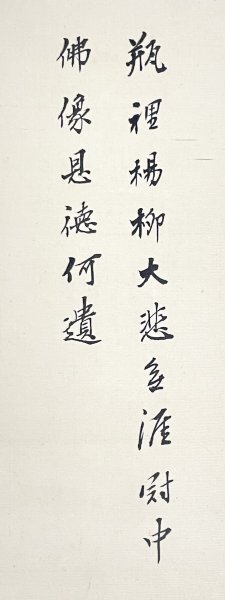 瓶裡楊柳大悲無涯厨中
佛像恩德何遺